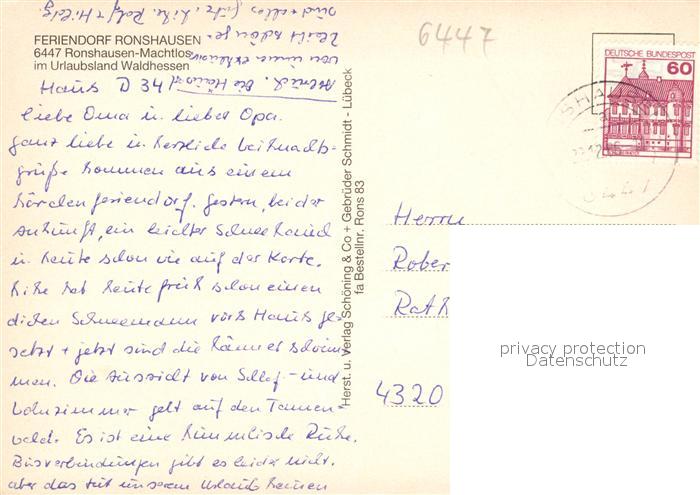 FERIENDORF RONSHAUSEN
6447 Ronshausen-Machtlos
im Urlaubsland Waldhessen
Haus D 34
liebe Oma u. lieber Opa.
ganz liebe u. herzliche Weihnachts-
grüße kommen aus einem
Märchenferiendorf. Gestern, bei der
Ankunft, ein leichter Schnee
u. heute schon wie auf der Karte.
hat heute früh schon einen
dicken Schneemann vors Haus ge-
setzt + jetzt sind die Männer schwim-
men. Die Aussicht von Schlaf- und
Wohnzimmer geht auf den Tannen-
wald. Es ist eine himmlische Ruhe.
Busverbindungen gibt es leider nicht,
aber das tut unserem Urlaub keinen
Herst. u. Verlag Schöning & Co + Gebrüder Schmidt - Lübeck
fa Bestellnr. Rons 83
6447
DEUTSCHE BUNDESPOST
60
Herrn
Rober
Rath
4320
privacy protection
Datenschutz